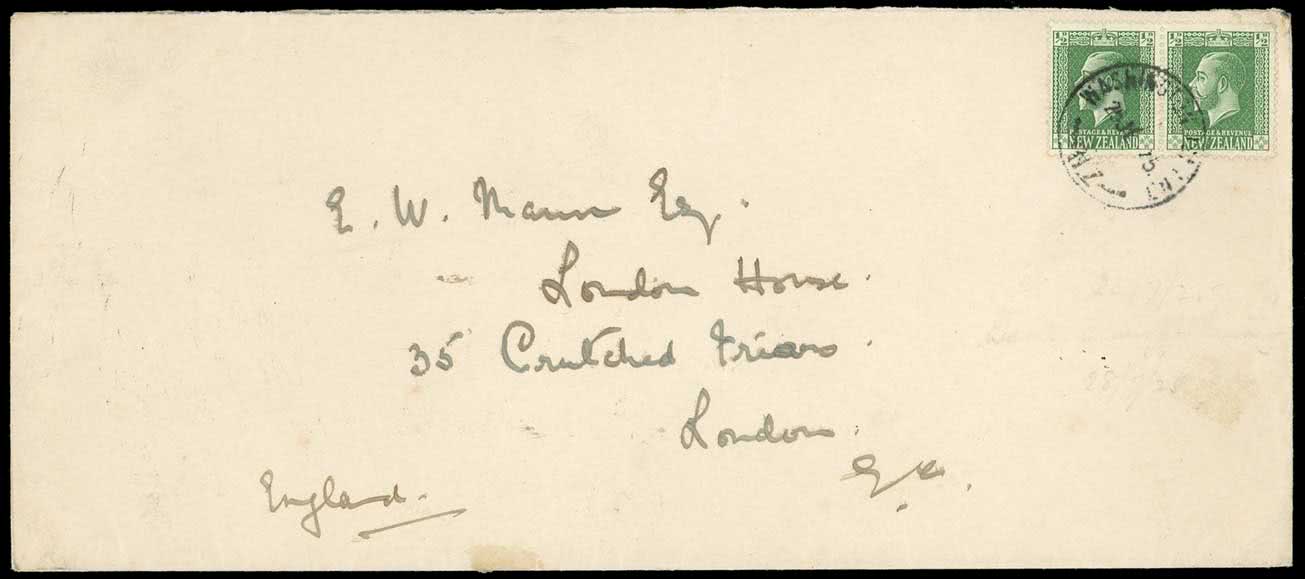 ½ ½ ½ ½
POSTAGE & REVENUE POSTAGE & REVENUE
NEW ZEALAND NEW ZEALAND
WASHINGTON
25
E. W. Mann Esq.
London House.
35 Crutched Friars.
London.
England.